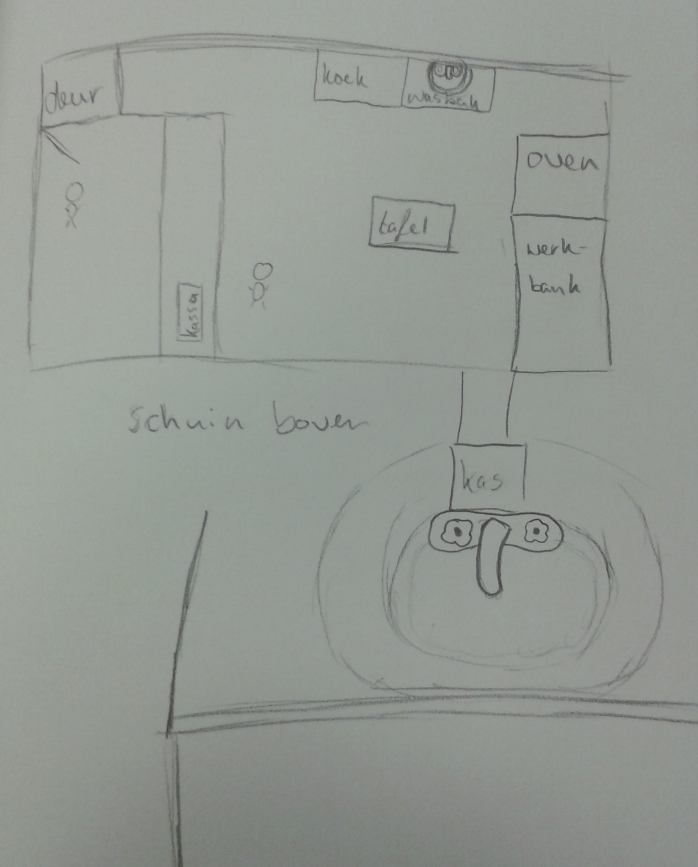 deur
koek
wasbak
oven
tafel
werk-
bank
kassa
schuin boven
kas